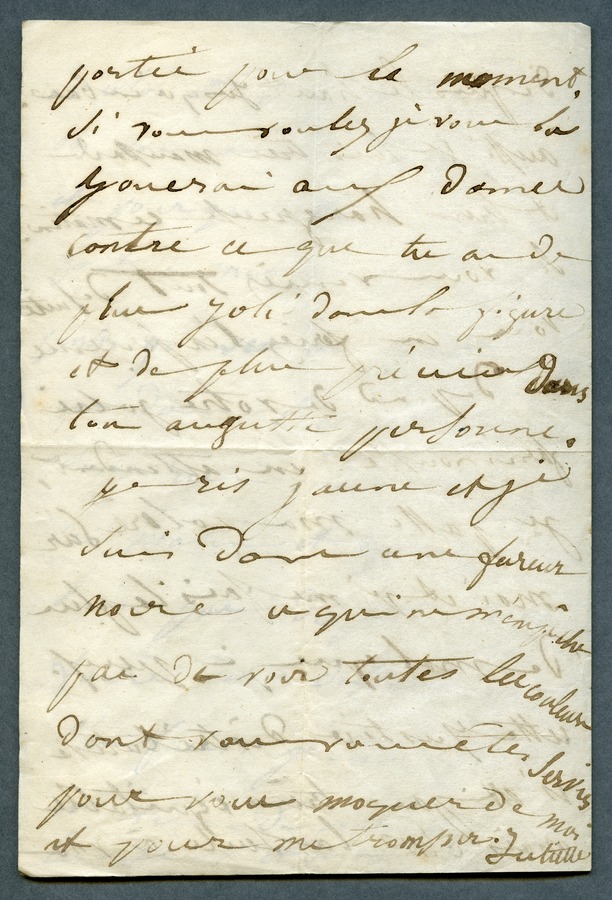 portée pour le moment.
Si vous voulez je vous la
jouerai aux dames
contre ce que tu as de
plus joli dans la figure
et de plus précieux dans
ton auguste personne.
je ris jaune et je
suis dans une fureur
noire ce qui ne m'empêche
pas de voir toutes les couleurs
dont vous vous êtes servis
pour vous moquer de moi
et pour me tromper.